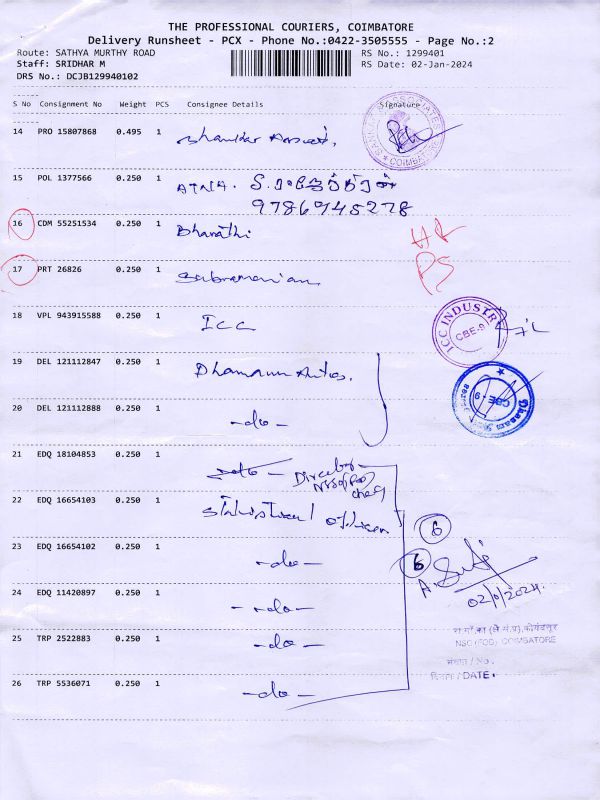 THE PROFESSIONAL COURIERS, COIMBATORE
Delivery Runsheet - PCX - Phone No.:0422-3505555 - Page No.:2
Route: SATHYA MURTHY ROAD RS No.: 1299401
Staff: SRIDHAR M RS Date: 02-Jan-2024
DRS No.: DCJB129940102
S No Consignment No Weight PCS Consignee Details Signature
14 PRO 15807868 0.495 1
COIMBATORE
15 POL 1377566 0.250 1
9786945278
16 CDM 55251534 0.250 1 Bharathi
17 PRT 26826 0.250 1 Subramanian
18 VPL 943915588 0.250 1 ICC
ICC INDUSTR
CBE-9
19 DEL 121112847 0.250 1
CBE - 9
20 DEL 121112888 0.250 1 -do-
21 EDQ 18104853 0.250 1
22 EDQ 16654103 0.250 1
6
23 EDQ 16654102 0.250 1 -do-
6
24 EDQ 11420897 0.250 1 -do-
25 TRP 2522883 0.250 1 -do-
NSC (FOD) COIMBATORE
संख्या / No.
दिनांक / DATE
26 TRP 5536071 0.250 1 -do-